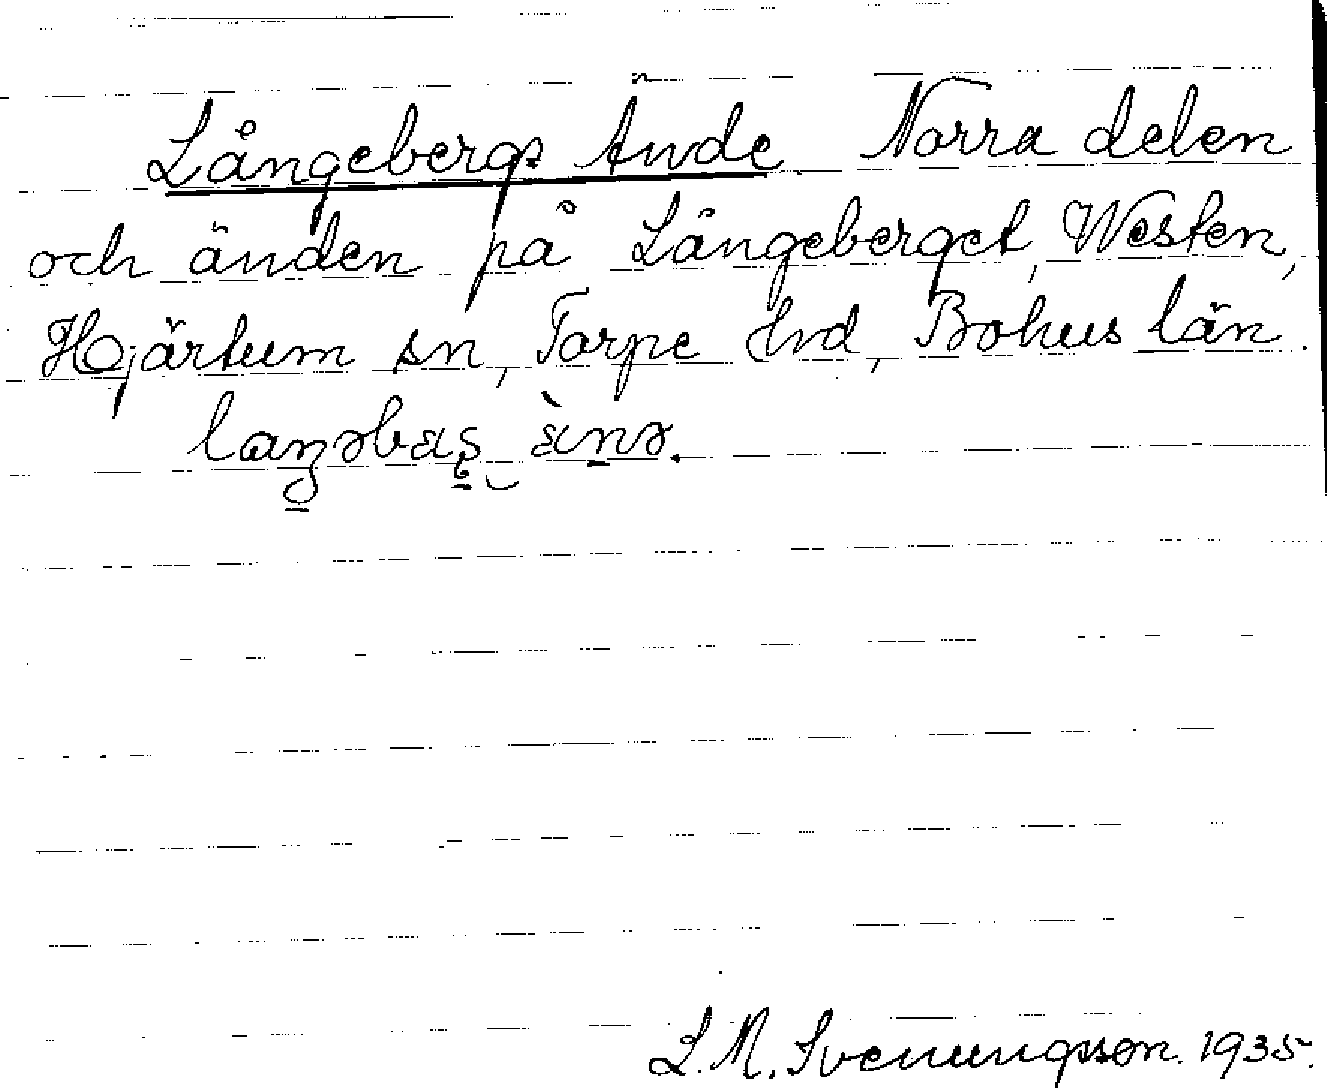 Långebergs Ände. Norra delen
och änden på Långeberget, Westen,
Hjärtum sn, Torpe Hrd, Bohus län.
L. M. Svenungsson. 1935.